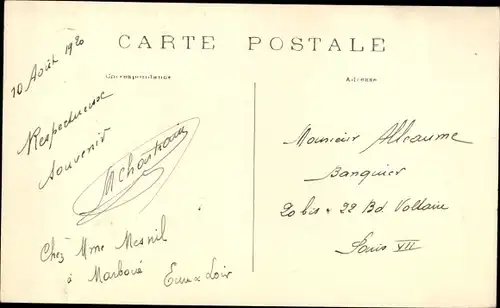 CARTE POSTALE
Correspondance
Adresse
10 Août 1920
Respectueux
souvenir
MChartrain
Chez Mme Mesnil
à Marboué Eure & Loir
Monsieur Alleaume
Banquier
20 bis & 22 Bd Voltaire
Paris VII